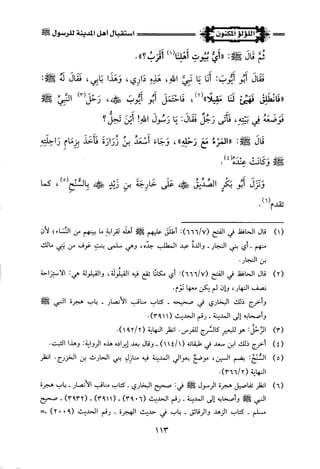 اللؤلؤ المكنون
استقبال أهل المدينة للرسول ﷺ
ثُمَّ قَالَ ﷺ: «أَيُّ بُيُوتِ أَهْلِنَا(١) أَقْرَبُ؟».
فَقَالَ أَبُو أَيُّوبَ: أَنَا يَا نَبِيَّ اللهِ، هَذِهِ دَارِي، وَهَذَا بَابِي، فَقَالَ لَهُ ﷺ:
«فَانْطَلِقْ فَهَيِّئْ لَنَا مَقِيلًا»(٢)، فَاحْتَمَلَ أَبُو أَيُّوبَ ﷺ، رَحْلَ(٣) النَّبِيِّ ﷺ
فَوَضَعَهُ فِي بَيْتِهِ، فَأَتَى رَجُلٌ فَقَالَ: يَا رَسُولَ اللهِ! أَيْنَ تَحِلُّ؟
قَالَ ﷺ: «الْمَرْءُ مَعَ رَحْلِهِ»، وَجَاءَ أَسْعَدُ بنُ زُرَارَةَ فَأَخَذَ بِزِمَامِ رَاحِلَتِهِ
ﷺ وَكَانَتْ عِنْدَهُ(٤).
وَنَزَلَ أَبُو بَكْرٍ الصِّدِّيقُ عَلَى خَارِجَةَ بنِ زَيْدٍ بِالسُّنْحِ(٥)، كما
تقدم(٦).
(١) قال الحافظ في الفتح (٦٦٦/٧): أطلق عليهم ﷺ أهله لقرابةٍ ما بينهم من النساء؛ لأن
منهم ـ أي بني النجار ـ والدةُ عبد المطلب جدِّه، وهي سلمى بنتِ عوف من بني مالك
بن النجار.
(٢) قال الحافظ في الفتح (٦٦٦/٧): أي مكانًا تقع فيه القيلُولَة، والقيلولة هي: الاستِرَاحة
نصف النهار، وإن لم يكن معها نَوْم.
وأخرج ذلك البخاري في صحيحه ـ كتاب مناقب الأنصار ـ باب هجرة النبي ﷺ
وأصحابه إلى المدينة ـ رقم الحديث (٣٩١١).
(٣) الرَّحْلُ: هو للبعير كالسرج للفرس. انظر النهاية (١٩٢/٢).
(٤) أخرج ذلك ابن سعد في طبقاته (١١٤/١) ـ وقال بعد إيراده هذه الرواية: وهذا الثبت.
(٥) السُّنْحُ: بضم السين، موضعٌ بعوالي المدينة فيه منازِلُ بني الحارث بن الخزرج. انظر
النهاية (٣٦٦/٢).
(٦) انظر تفاصيل هجرة الرسول ﷺ في: صحيح البخاري ـ كتاب مناقب الأنصار ـ باب هجرة
النبي ﷺ وأصحابه إلى المدينة ـ رقم الحديث (٣٩٠٦) ـ (٣٩١١) ـ (٣٩٣٢) ـ صحيح
مسلم ـ كتاب الزهد والرقائق ـ باب في حديث الهجرة ـ رقم الحديث (٢٠٠٩) =ـ
١١٣